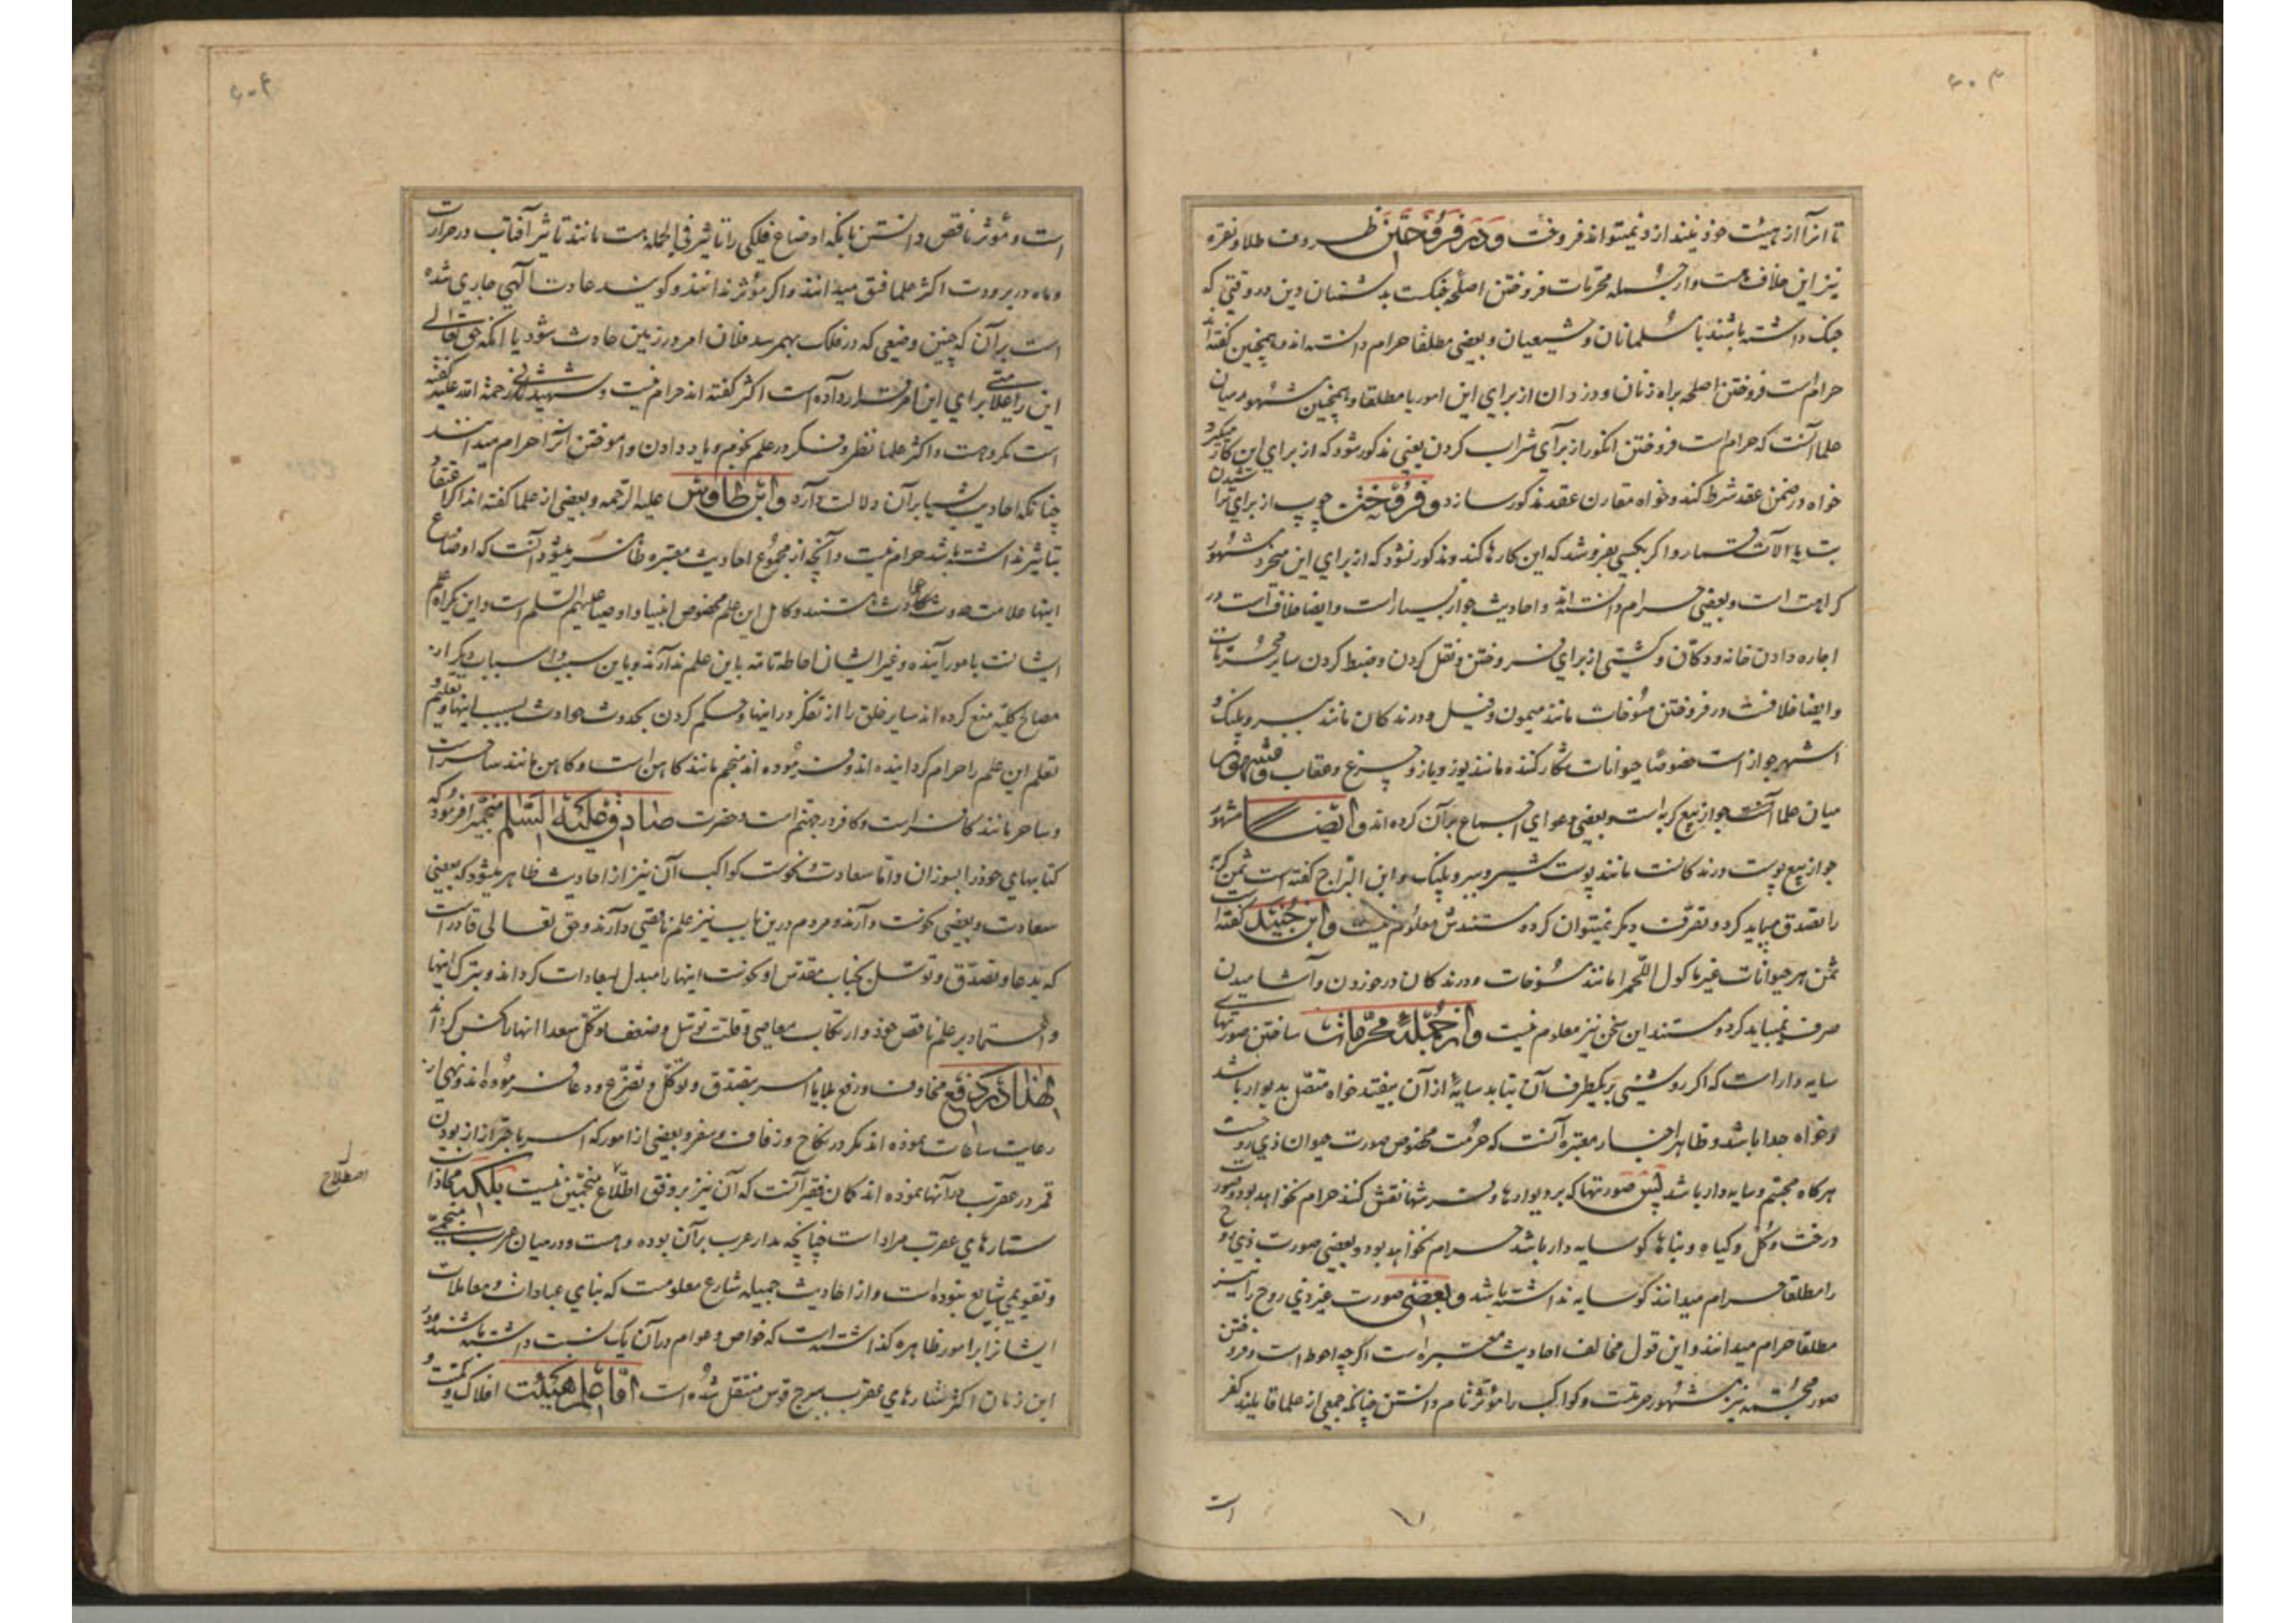 ۶۰۳
تا آنرا از هیئت خود نیندازد نمیتواند فروخت و در فروختن ظروف طلا و نقره
نیز این خلاف هست و از جمله محرمات فروختن اصلحه جنکست بدشمنان دین در وقتی که
جنک داشته باشند با مسلمانان و شیعیان و بعضی مطلقا حرام دانسته اند و همچنین کفته اند
حرام است فروختن اصلحه براه زنان و دزدان از برای این امور یا مطلقا و همچنین مشهور میان
علما آنست که حرام است فروختن انکور از برای شراب کردن یعنی مذکور شود که از برای این کار میکیرد
خواه در ضمن عقد شرط کند و خواه مقارن عقد مذکور سازد و فروختن چوب از برای تراشیدن
بت یا آلات قمار و اکر بکسی بفروشد که این کارها کند و مذکور نشود که از برای این میخرد مشهور
کراهت است و بعضی حرام دانسته اند و احادیث جواز بسیار است و ایضا خلاف است در
اجاره دادن خانه و دکان و کشتی از برای فروختن و نقل کردن و ضبط کردن سایر محرمات
و ایضا خلافست در فروختن مسوخات مانند میمون و فیل و درندکان مانند ببر و پلنک و
اشهر جواز است خصوصا حیوانات شکار کننده مانند یوز و باز و چرغ و عقاب و مشهور
میان علما آنست جواز بیع کربه است و بعضی دعوای اجماع بر آن کرده اند و ایضا مشهور
جواز بیع پوست درندکانست مانند پوست شیر و ببر و پلنک و ابن البراج کفته است ثمن کربه
را تصدق میباید کرد و تصرف دیکر نمیتوان کرد و مستندش معلوم نیست و ابن جنید کفته است
ثمن هر حیوانات غیر ماکول اللحم را مانند مسوخات و درندکان در خوردن و آشامیدن
صرف نمیباید کرد و مستند این سخن نیز معلوم نیست و از جمله محرمات ساختن صورتهای
سایه دار است که اکر روشنی بر یکطرف آن بتابد سایه از آن بیفتد خواه متصل بدیوار باشد
و خواه جدا باشد و ظاهر اخبار معتبره آنست که حرمت مخصوص صورت حیوان ذی روحست
هرکاه مجسم و سایه دار باشد پس صورتها که بر دیوارها و فرشها نقش کنند حرام نخواهد بود و صورت
درخت و کل و کیاه و بناها کو سایه دار باشد حرام نخواهد بود و بعضی صورت ذی روح
را مطلقا حرام میدانند کو سایه نداشته باشد و بعضی صورت غیر ذی روح را نیز
مطلقا حرام میدانند و این قول مخالف احادیث معتبره است اکرچه احوط است و فروختن
صور مجسمه نیز مشهور حرمتست و کواکب را مؤثر تام دانستن چنانکه جمعی از علما قایلند کفر
است
۶۰۴
است و مؤثر ناقص دانستن بآنکه اوضاع فلکی را تاثیر فی الجمله هست مانند تاثیر آفتاب در حرارت
و ماه در برودت اکثر علما فسق میدانند و اکر مؤثر ندانند و کویند عادت الهی جاری شده
است بر آن که چنین وضعی که در فلک بهم رسد فلان امر در زمین حادث شود یا آنکه حق تعالی
این را علامتی برای این امر قرار داده است اکثر کفته اند حرام نیست و شهید ثانی رحمة الله علیه کفته
است مکروهست و اکثر علما نظر و فکر در علم نجوم و یاد دادن و آموختن آنرا حرام میدانند
چنانکه احادیث بسیار بر آن دلالت دارد و ابن طاوس علیه الرحمه و بعضی از علما کفته اند اکر اعتقاد
بتاثیر نداشته باشد حرام نیست و آنچه از مجموع احادیث معتبره ظاهر میشود آنست که اوضاع
اینها علامت حدوث حادثات هستند و کامل این علم مخصوص انبیا و اوصیا علیهم السلم است و این یکی از علم
ایشانست بامور آینده و غیر ایشان احاطه تامه باین علم ندارند و باین سبب و اسباب دیکر از
مصالح کلیه منع کرده اند سایر خلق را از تفکر در اینها و حکم کردن بحدوث حوادث بسبب اینها و تعلیم و
تعلم این علم را حرام کردانیده اند و فرموده اند منجم مانند کاهن است و کاهن مانند ساحر است
و ساحر مانند کافر است و کافر در جهنم است و حضرت صادق علیه السلم منجمی را فرمود که
کتابهای خود را بسوزان و اما سعادت و نحوست کواکب آن نیز از احادیث ظاهر میشود که بعضی
سعادت و بعضی نحوست دارند و مردم در این باب نیز علم ناقصی دارند و حق تعالی قادر است
که بدعا و تصدق و توسل بجناب مقدس او نحوست اینها را مبدل بسعادات کرداند و بترک اینها
و اعتماد بر علم ناقص خود و ارتکاب معاصی و قلت توسل و ضعف توکل سعد اانها را نحس کرداند
لهذا در دفع مخاوف و رفع بلایا امر بتصدق و توکل و تضرع و دعا فرموده اند و نهی از
رعایت ساعات نموده اند مکر در نکاح و زفاف و سفر و بعضی از امور که امر باحتراز از بودن
قمر در عقرب در آنها نموده اند کمان فقیر آنست که آن نیز بر وفق اطلاع منجمین نیست بلکه محاذات
اصطلاح
ستارهای عقرب مراد است چنانچه مدار عرب بر آن بوده و هست و در میان عرب منجمی
و تقویمی شایع نبوده است و از احادیث جمیله شارع معلومست که بنای عبادات و معاملات
ایشانرا بر امور ظاهره کذاشته است که خواص و عوام در آن یک نسبت داشته باشند و در
این زمان اکثر ستارهای عقرب ببرج قوس منتقل شده است اما علم هیئت افلاک و کمیت و